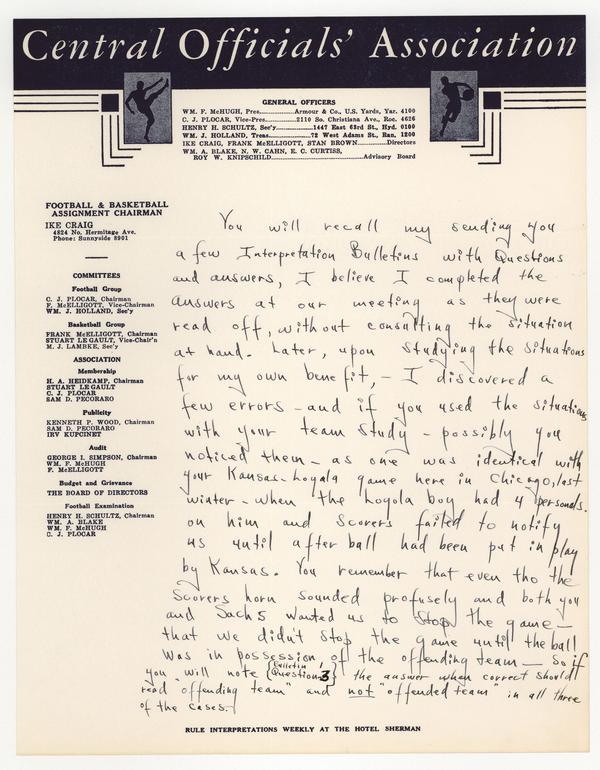 Central Officials' Association
GENERAL OFFICERS
WM. F. McHUGH, Pres.............Armour & Co., U.S. Yards, Yar. 4100
C. J. PLOCAR, Vice-Pres...........2110 So. Christiana Ave., Roc. 4626
HENRY H. SCHULTZ, Sec'y..............1447 East 63rd St., Hyd. 0100
WM. J. HOLLAND, Treas................72 West Adams St., Ran. 1200
IKE CRAIG, FRANK McELLIGOTT, STAN BROWN..............Directors
WM. A. BLAKE, N. W. CAHN, E. C. CURTISS,
ROY W. KNIPSCHILD........................Advisory Board
FOOTBALL & BASKETBALL
ASSIGNMENT CHAIRMAN
IKE CRAIG
4824 No. Hermitage Ave.
Phone: Sunnyside 8901
COMMITTEES
Football Group
C. J. PLOCAR, Chairman
F. McELLIGOTT, Vice-Chairman
WM. J. HOLLAND, Sec'y
Basketball Group
FRANK McELLIGOTT, Chairman
STUART LE GAULT, Vice-Chair'n
M. J. LAMBKE, Sec'y
ASSOCIATION
Membership
H. A. HEIDKAMP, Chairman
STUART LE GAULT
C. J. PLOCAR
SAM D. PECORARO
Publicity
KENNETH P. WOOD, Chairman
SAM D. PECORARO
IRV KUPCINET
Audit
GEORGE I. SIMPSON, Chairman
WM. F. McHUGH
F. McELLIGOTT
Budget and Grievance
THE BOARD OF DIRECTORS
Football Examination
HENRY H. SCHULTZ, Chairman
WM. A. BLAKE
WM. F. McHUGH
C. J. PLOCAR
You will recall my sending you
a few Interpretation Bulletins with Questions
and answers, I believe I completed the
answers at our meeting as they were
read off, without consulting the situation
at hand. Later, upon studying the situations
for my own benefit, - I discovered a
few errors - and if you used the situations
with your team study - possibly you
noticed them - as one was identical with
your Kansas-Loyala game here in Chicago, last
winter - when the Loyola boy had 4 personals.
on him and scorers failed to notify
us until after ball had been put in play
by Kansas. You remember that even tho the
scorers horn sounded profusely and both you
and Sachs wanted us to stop the game -
that we didn't stop the game until the ball
was in possession of the offending team - So if
you will note {Bulletin 1 Question 3} the answer when correct should
read "offending team" and not "offended team" in all three
of the cases.
RULE INTERPRETATIONS WEEKLY AT THE HOTEL SHERMAN